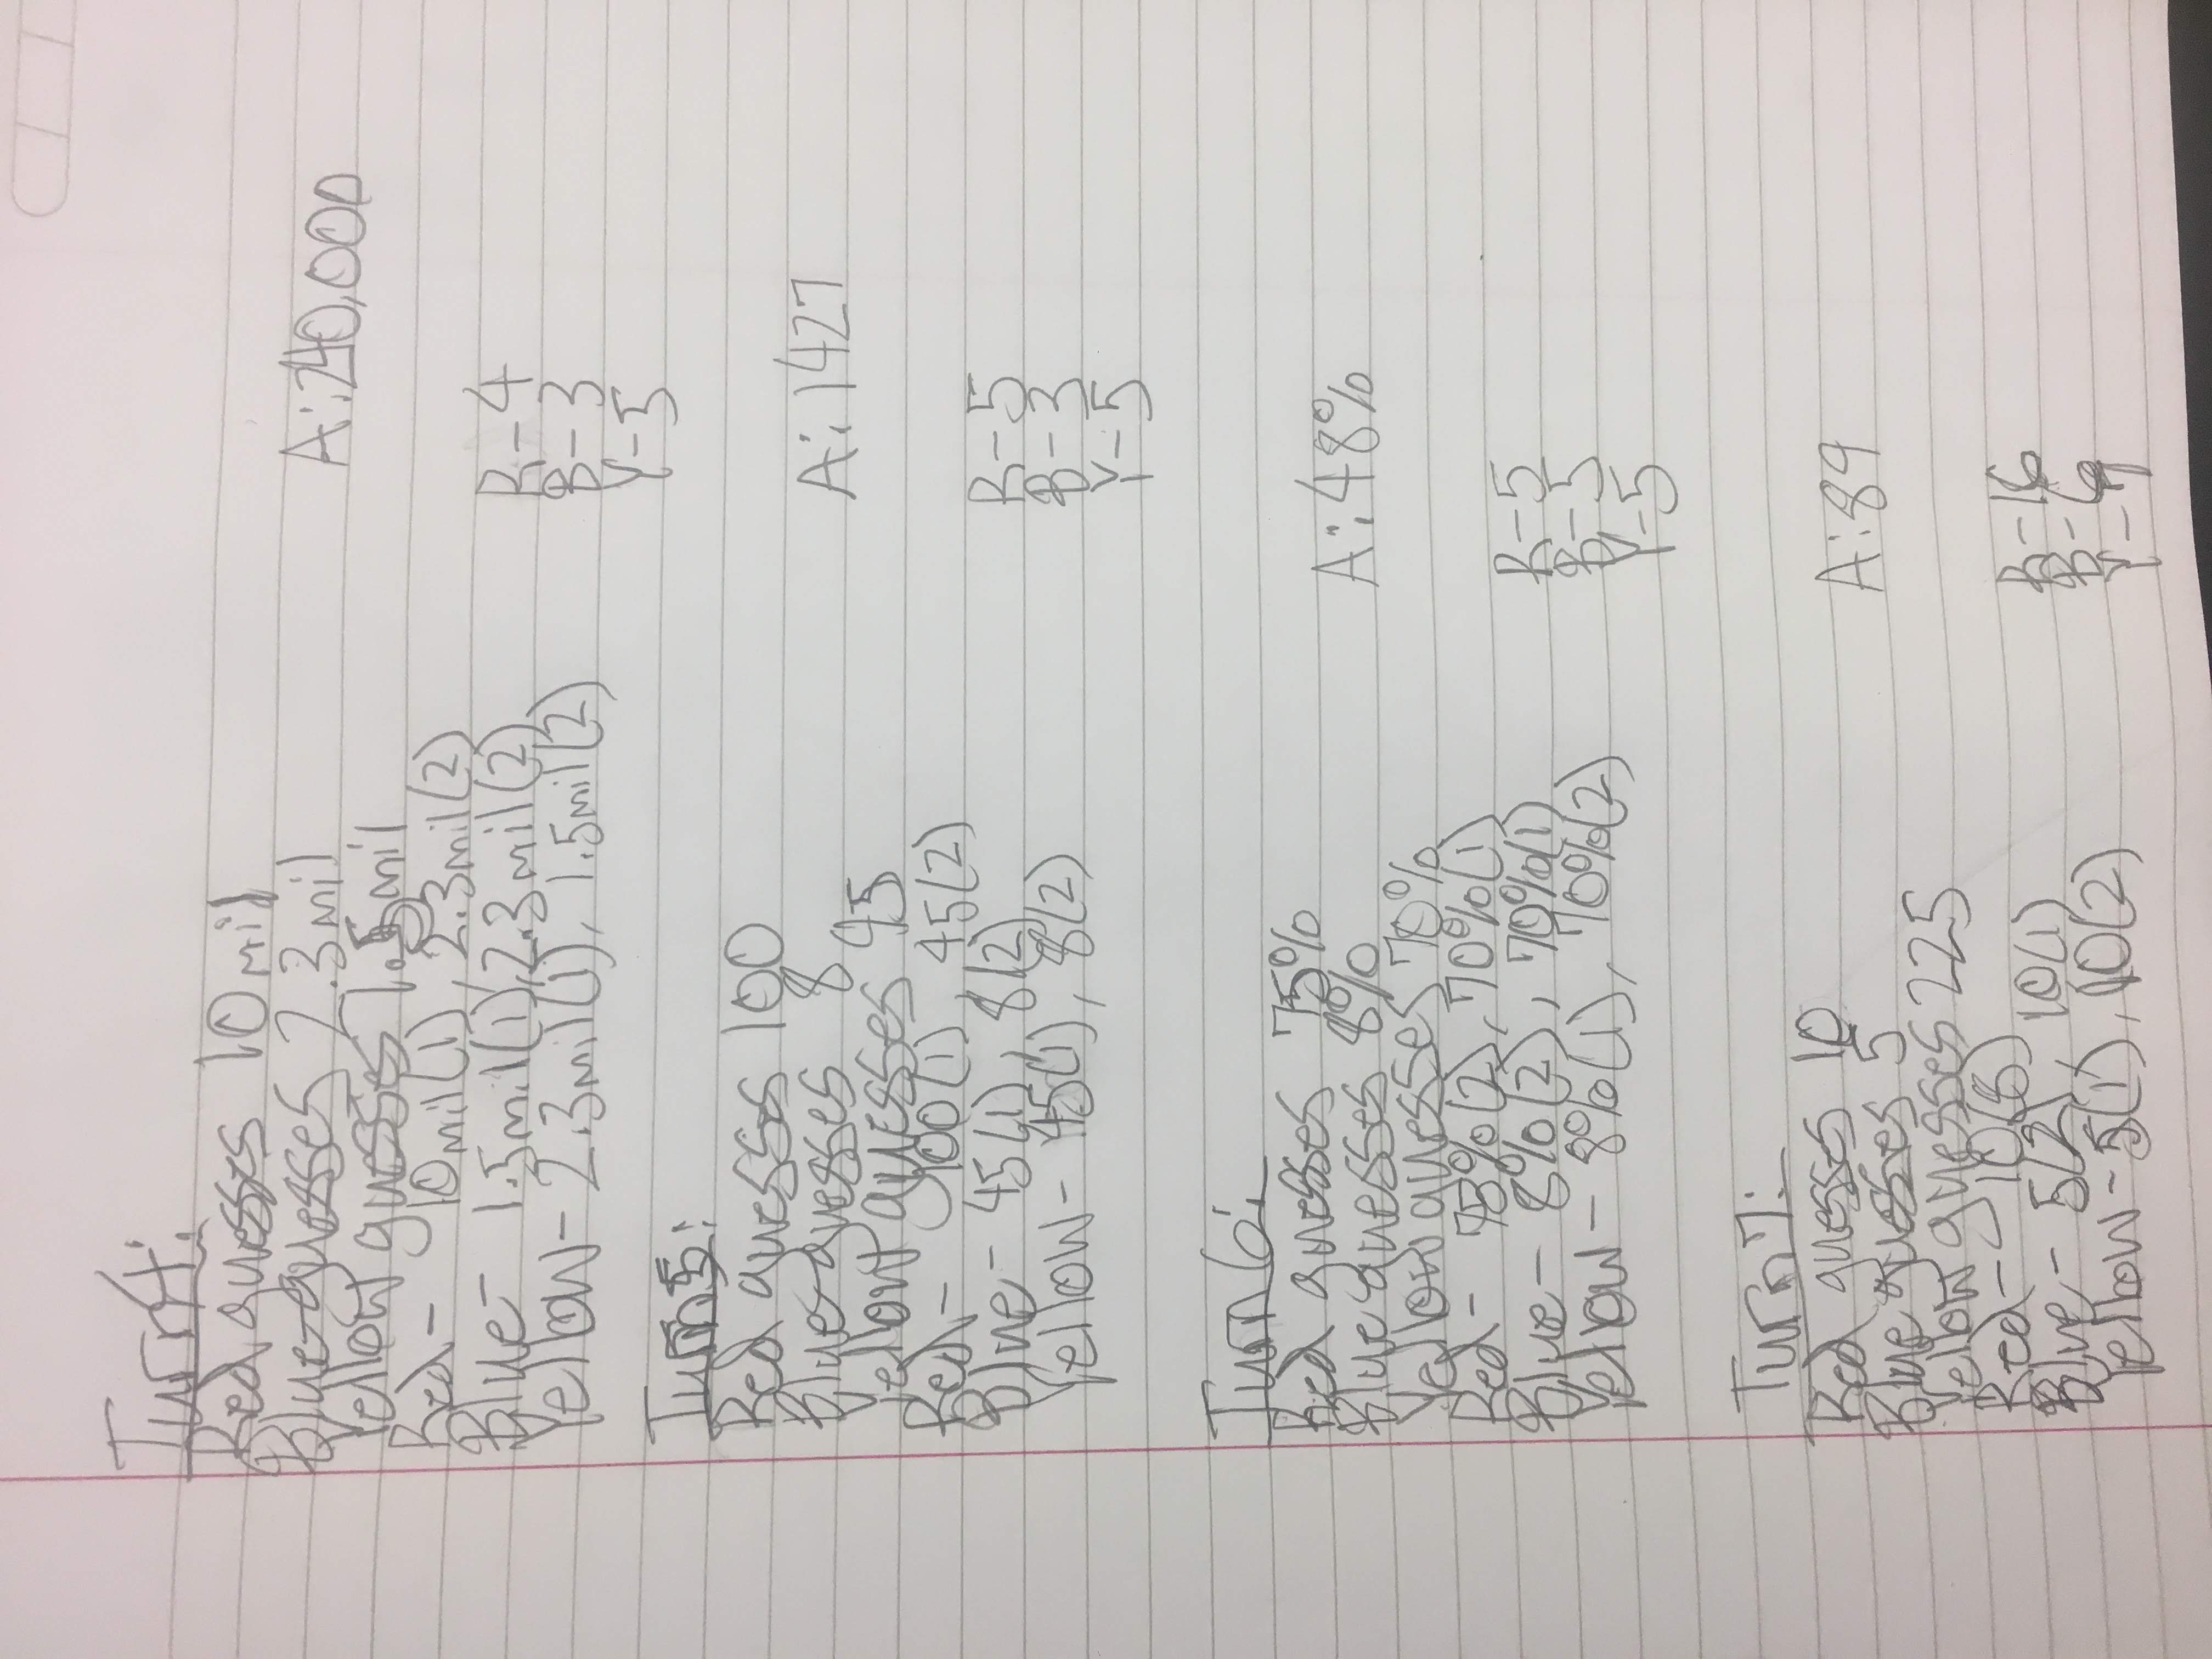 Turn 4:
Red guesses 10 mil
Blue guesses 2.3 mil
A: 240,000
Yellow guesses 1.5 mil
Red - 10 mil (1), 2.3 mil (2)
Blue - 1.5 mil (1), 2.3 mil (2)
R - 4
Yellow - 2.3 mil (1), 1.5 mil (2)
B - 3
Y - 5
Turn 5:
Red guesses 100
Blue guesses 8
A: 1427
Yellow guesses 45
Red - 100 (1), 45 (2)
Blue - 45 (1), 8 (2)
R - 5
Yellow - 45 (1), 8 (2)
B - 3
Y - 5
Turn 6:
Red guesses 75%
Blue guesses 8%
A: 48%
Yellow guesses 70%
Red - 75% (2), 70% (1)
Blue - 8% (2), 70% (1)
R - 5
Yellow - 8% (1), 70% (2)
B - 3
Y - 5
Turn 7:
Red guesses 10
Blue guesses 5
A: 89
Yellow guesses 225
Red - 10 (8)
Blue - 5 (2), 10 (1)
R - 16
Yellow - 5 (1), 10 (2)
B - 6
Y -